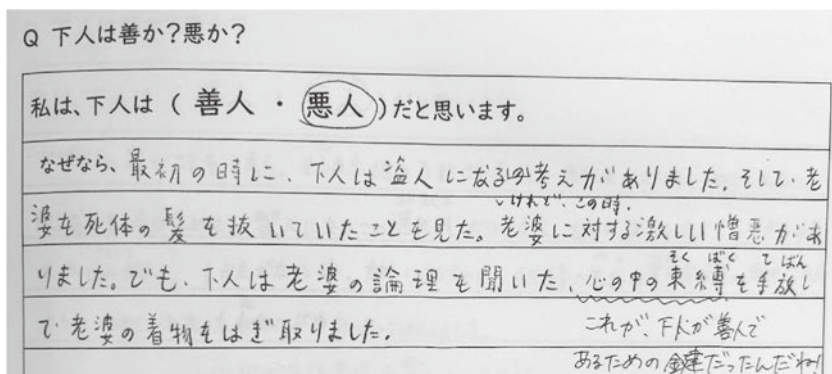 Q 下人は善か?悪か?
私は、下人は ( 善人 ・ 悪人 ) だと思います。
なぜなら、最初の時に、下人は盗人になるの考えがありました。そして、老
婆を死体の髪を抜いていたことを見た。老婆に対する激しい憎悪があ
けれど、この時、
りました。でも、下人は老婆の論理を聞いた、心の中の束縛を手放し
そく ばく て ばん
て老婆の着物をはぎ取りました。
これが、下人が善人で
あるための鍵だったんだね!